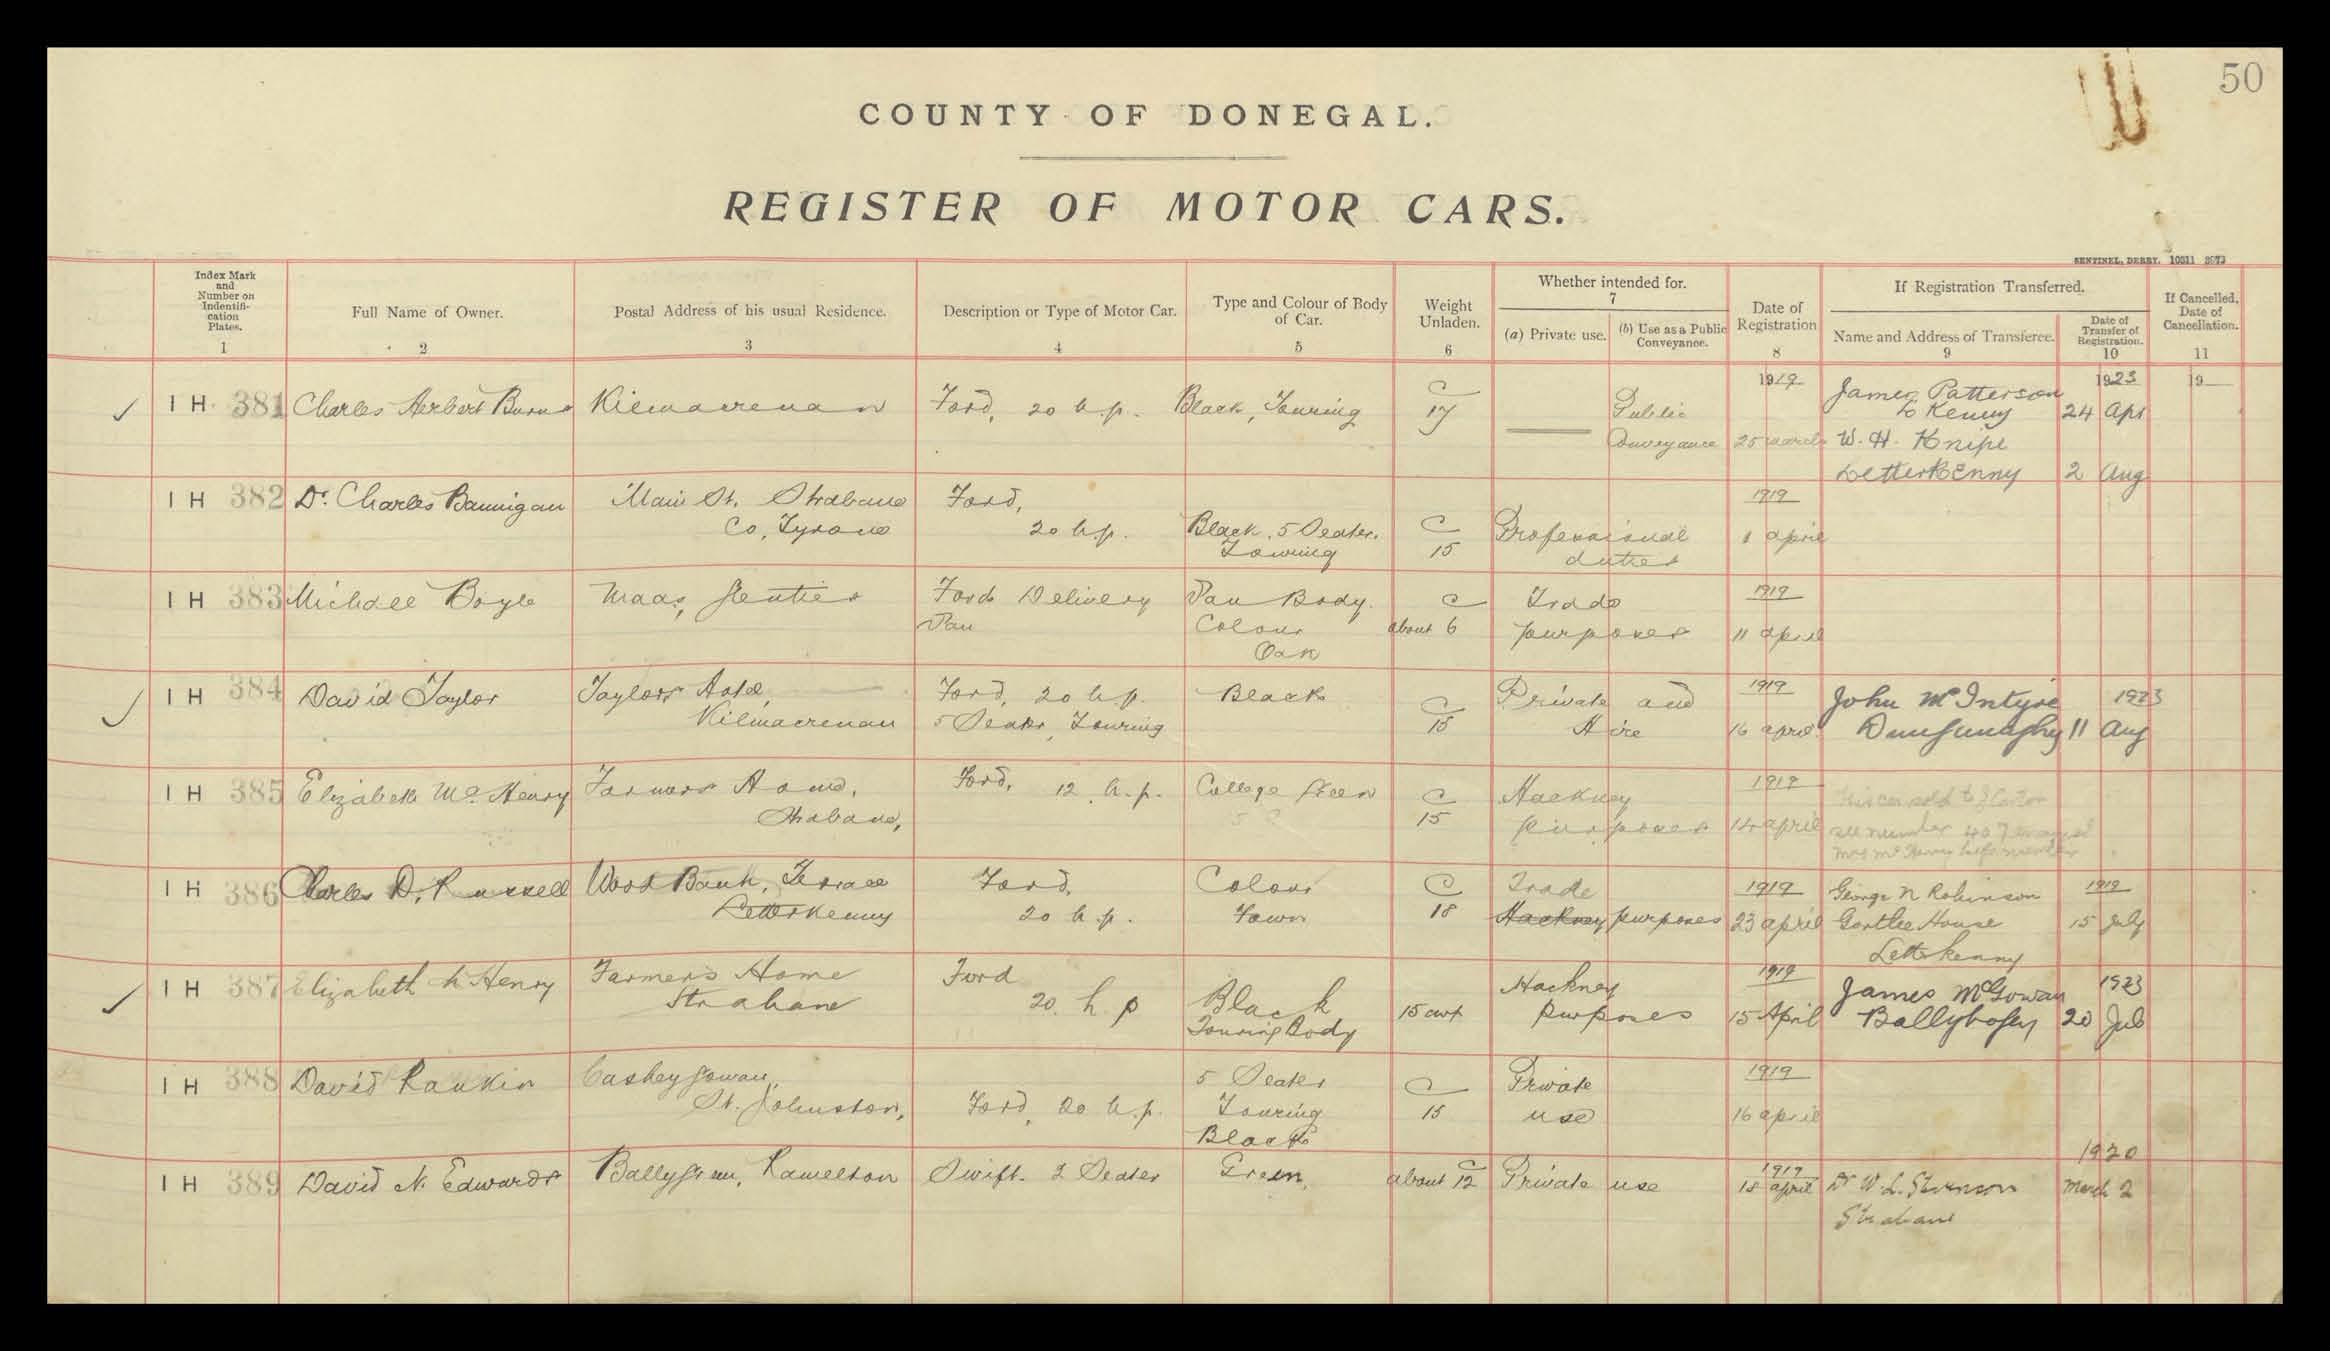 50
COUNTY OF DONEGAL.
REGISTER OF MOTOR CARS.
SENTINEL, DERRY. 10811 3973
Index Mark and Number on Indentifi-cation Plates. 1
Full Name of Owner. 2
Postal Address of his usual Residence. 3
Description or Type of Motor Car. 4
Type and Colour of Body of Car. 5
Weight Unladen. 6
Whether intended for. 7
(a) Private use.
(b) Use as a Public Conveyance.
Date of Registration 8
If Registration Transferred.
Name and Address of Transferee. 9
Date of Transfer of Registration. 10
If Cancelled, Date of Cancellation. 11
1919 1923 19
✓ IH 381 Charles Herbert Burns Kilmacrenan Ford, 20 h.p. Black, Touring C James Patterson
17 Public L'Kenny 24 Apr
Conveyance 25 March W. H. Knipe
LetterKenny 2 Aug
IH 382 Dr. Charles Bannigan Main St. Strabane Ford, 1919
Co, Tyrone 20 h.p. Black, 5 Seater. C Professional 1 April
Touring 15 duties
IH 383 Michael Boyle Maas, Glenties Ford Delivery Van Body. C Trade 1919
Van Colour about 6 purposes 11 april
Oak
✓ IH 384 David Taylor Taylors Hotel, Ford, 20 h.p. Black C Private and 1919 John McIntyre 1923
Kilmacrenan 5 Seater, Touring 15 Hire 16 april Dunfanaghy 11 Aug
IH 385 Elizabeth Mc. Henry Farmers Home, Ford, 12 h.p. College Green C Hackney 1919 This car sold to J
Strabane, 15 purposes 14 april see number 407
Mrs McHenry
IH 386 Charles D. Russell Wood Bank, Terrace Ford, Colour C Trade 1919 George N Robinson 1919
Letterkenny 20 h.p. Fawn 18 Hackney purposes 23 april Gortlee House 15 July
Letterkenny
✓ IH 387 Elizabeth McHenry Farmers Home Ford Hackney 1919 James McGowan 1923
Strabane 20 h p Black 15 cwt purposes 15 April Ballybofey 20 Jul
Touring Body
IH 388 David Rankin Casheygowan, 5 Seater C Private 1919
St. Johnston, Ford, 20 h.p. Touring 15 use 16 april
Black
IH 389 David N. Edwards Ballygreen, Ramelton Swift. 2 Seater Green, C about 12 Private use 1919 18 april Dr W. L. Stevenson 1920 March 2
Strabane